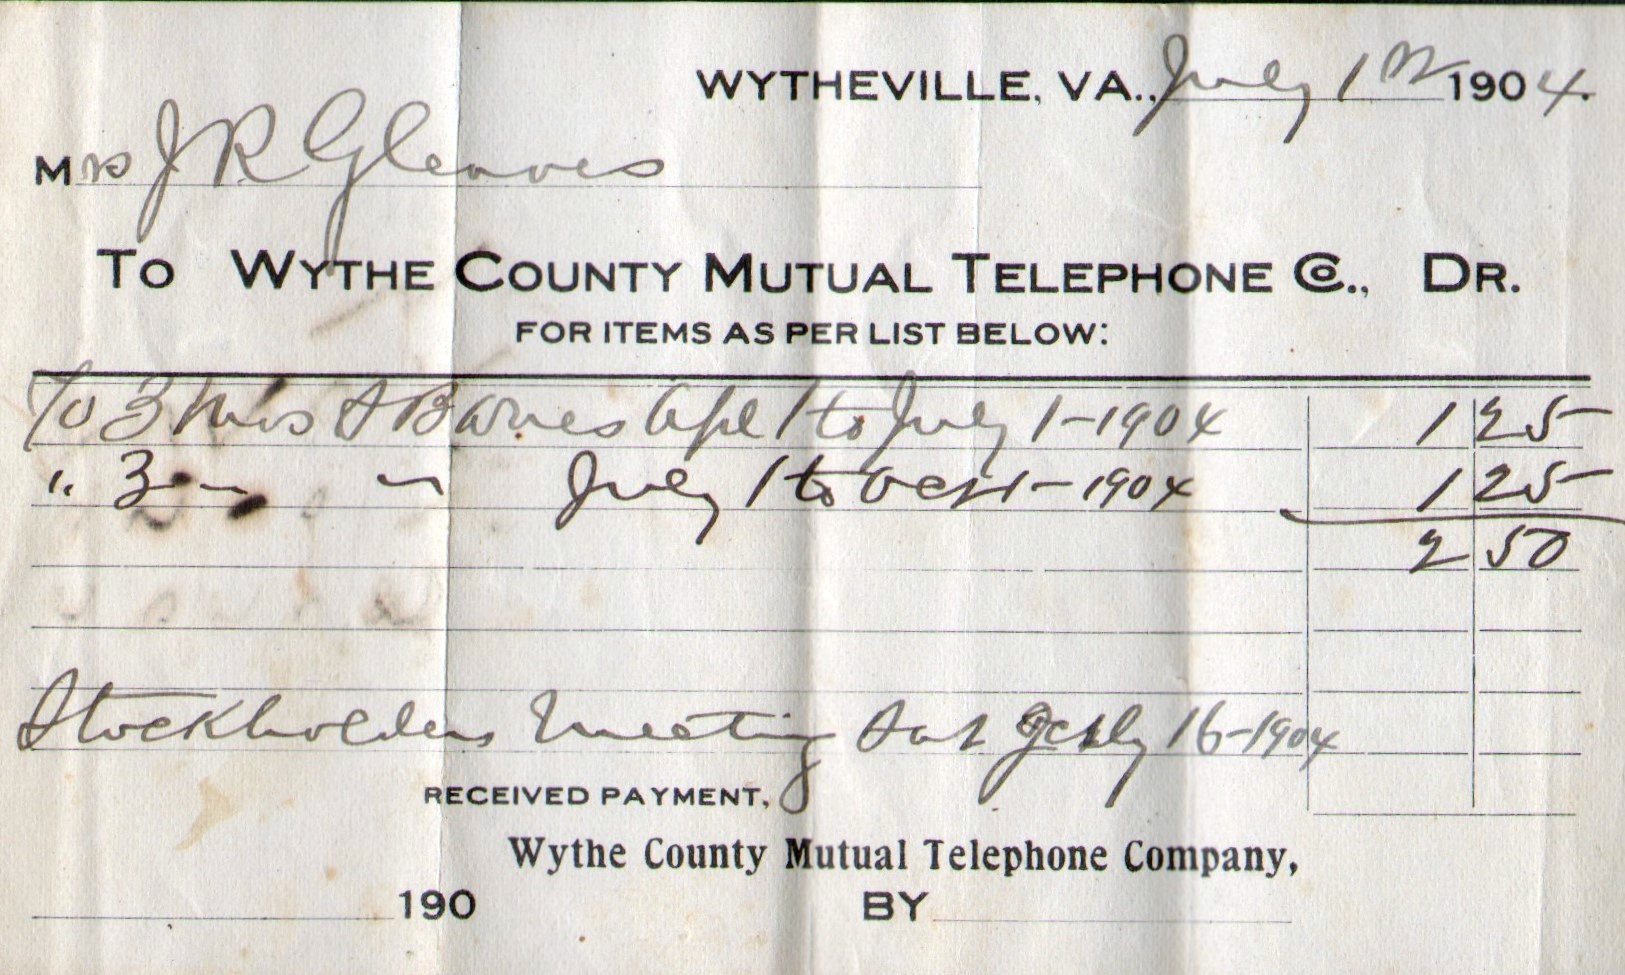 WYTHEVILLE, VA., July 1st 1904.
Mrs J R Gleaves
TO WYTHE COUNTY MUTUAL TELEPHONE CO., DR.
FOR ITEMS AS PER LIST BELOW:
To 3 Mos Apl 1 to July 1-1904 1 25
" 3 " " July 1 to Oct 1-1904 1 25
2 50
Stockholders Meeting Sat July 16-1904
RECEIVED PAYMENT,
Wythe County Mutual Telephone Company,
190 BY